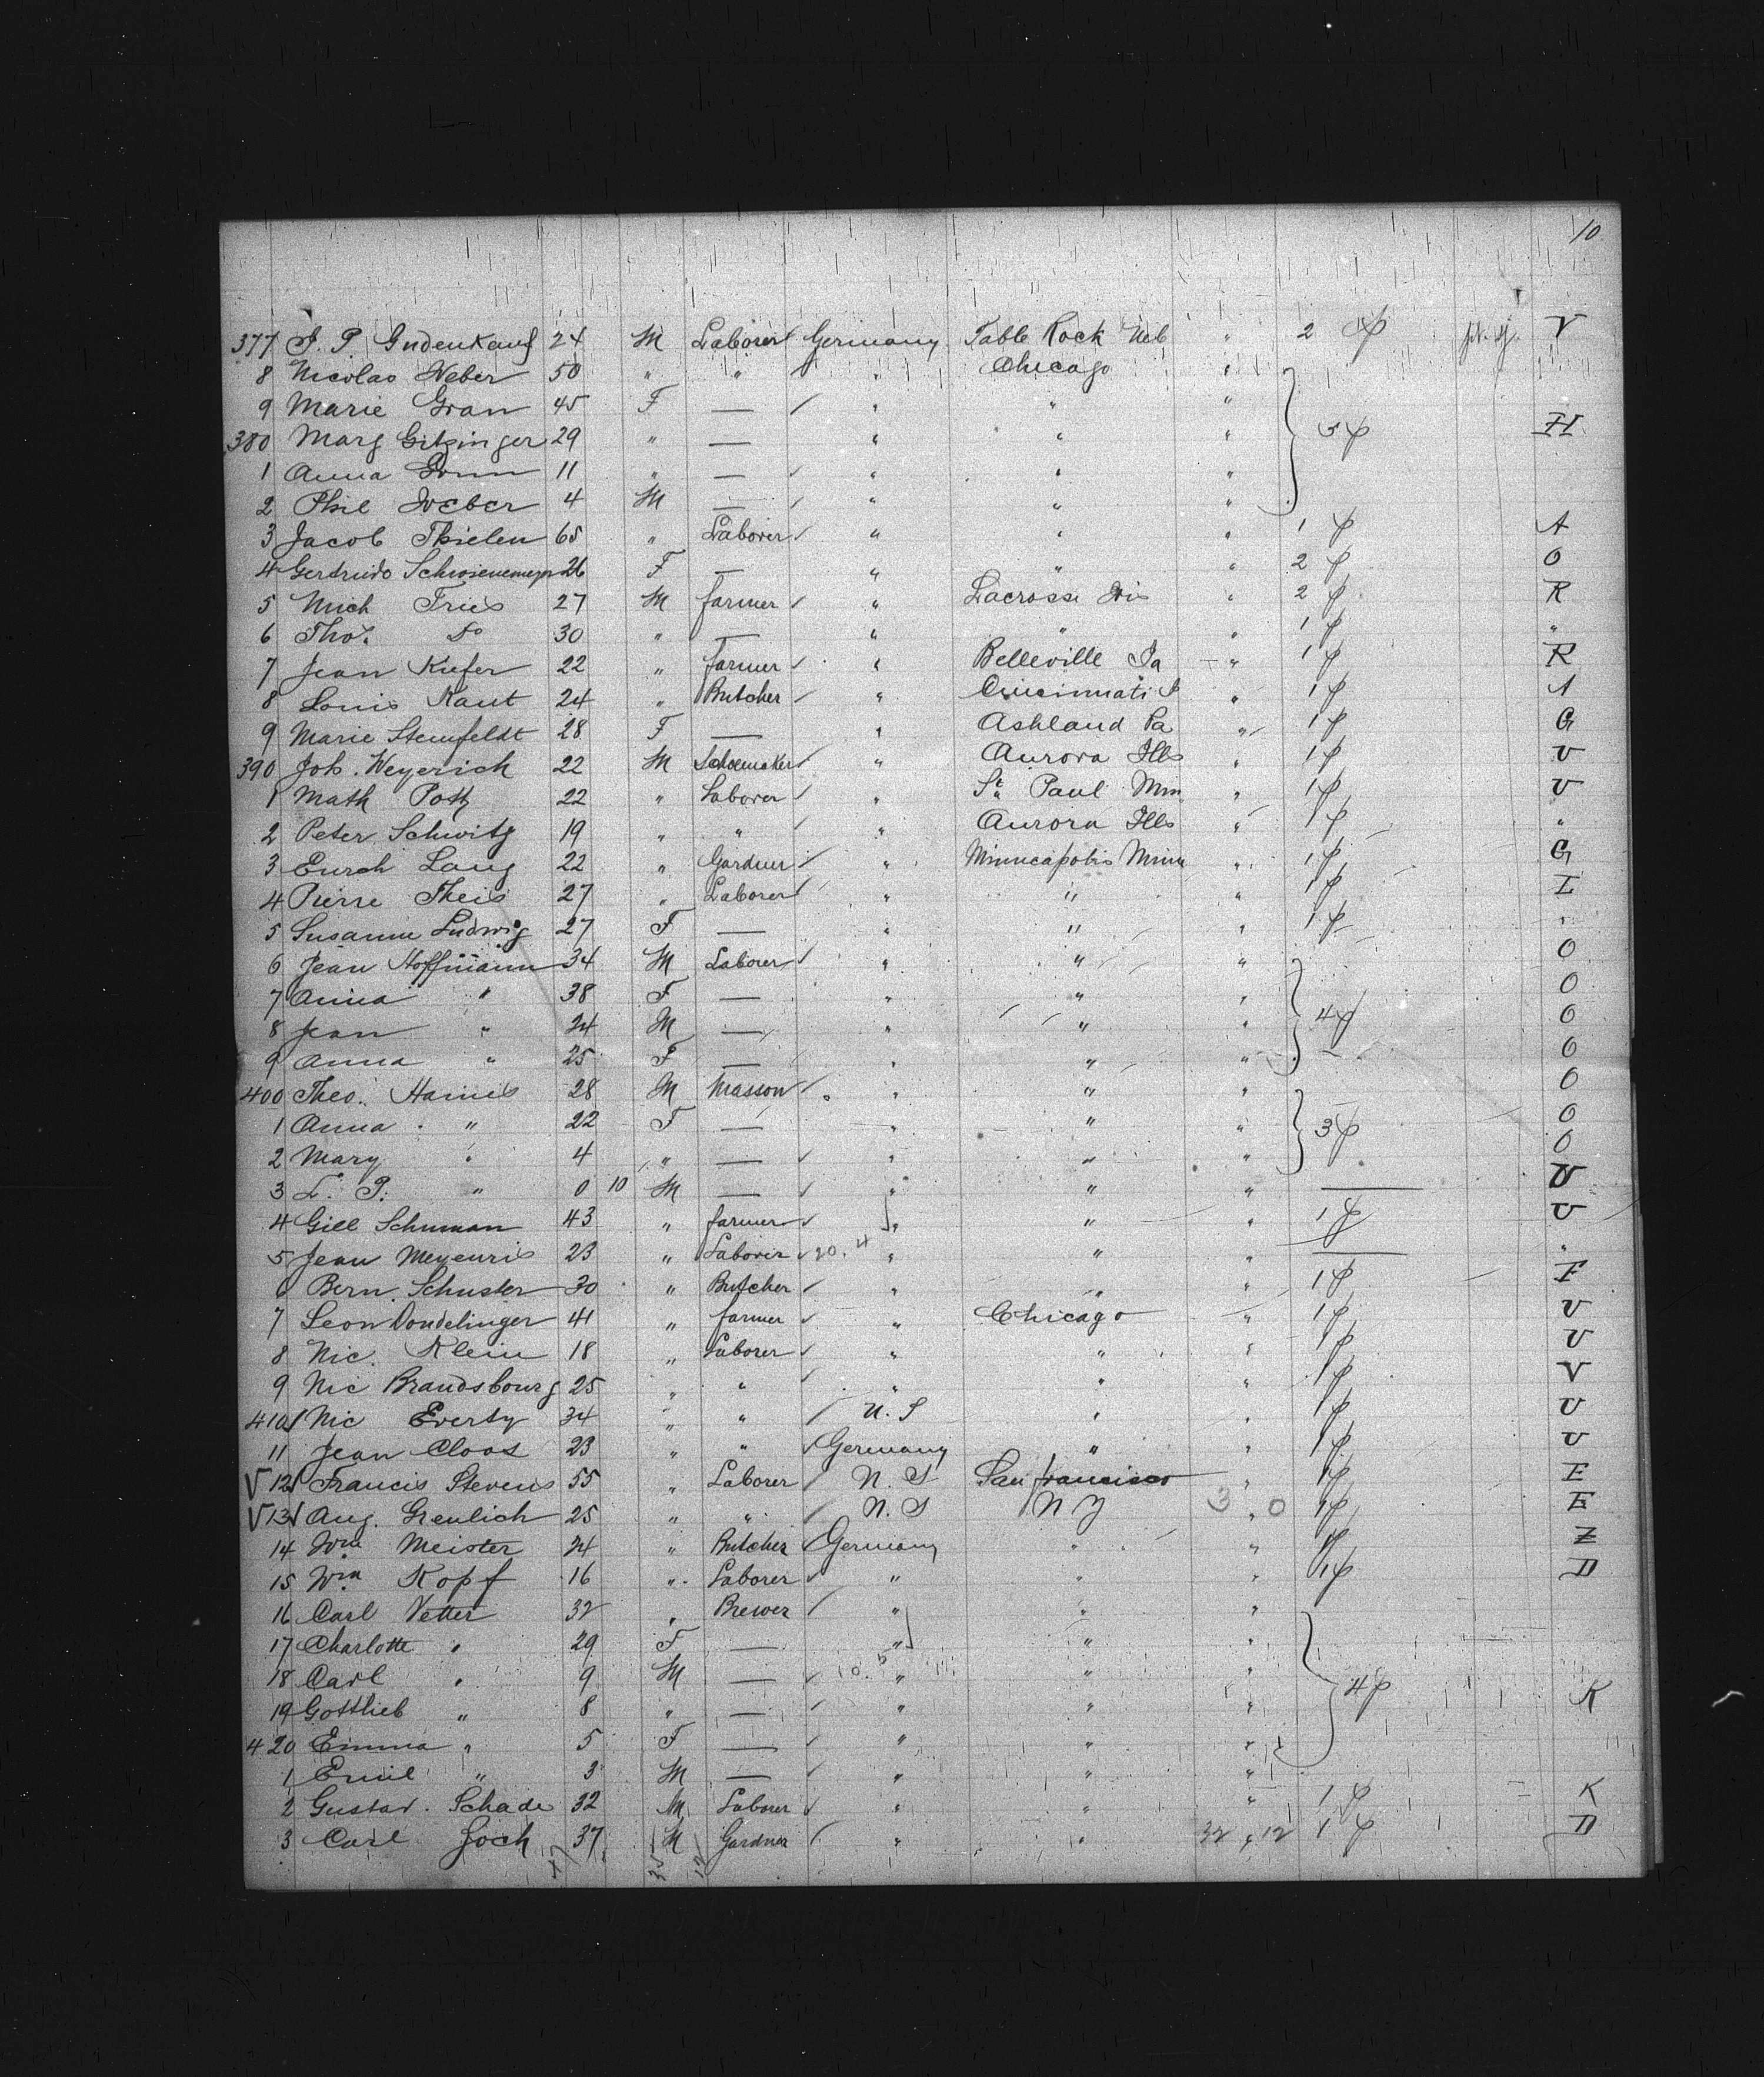 10
377 J. P. Gudenkauf 24 M Laborer Germany Table Rock Neb " 2 p V
8 Nicolas Weber 50 " " " Chicago "
9 Marie Gran 45 F — " " "
380 Marg Gitzinger 29 " — " " " 5 p H
1 Anna 11 " — " " "
2 Phil Weber 4 M — " " "
3 Jacob Thielen 65 " Laborer " " " 1 p A
4 26 F — " " " 2 p O
5 Mich Fries 27 M farmer " Lacrosse Wis " 2 p R
6 Thos. Do 30 " — " " " 1 p "
7 Jean Kiefer 22 " farmer " Belleville Ia " 1 p R
8 Louis Kaut 24 " Butcher " Cincinnati " 1 p A
9 Marie Steinfeldt 28 F — " Ashland Pa " 1 p G
390 Joh. Weyerich 22 M Schoemaker " Aurora Ills " 1 p V
1 Math 22 " Laborer " St Paul Min " 1 p V
2 Peter Schwitz 19 " " " Aurora Ills " 1 p "
3 Lang 22 " Gardner " Minneapolis Minn " 1 p G
4 Pierre Theis 27 " Laborer " " " 1 p L
5 Susanne Ludwig 27 F — " " " 1 p "
6 Jean Hoffmann 34 M Laborer " " " O
7 Anna " 38 F — " " " O
8 Jean " 24 M — " " " 4 p O
9 Anna " 25 F — " " " O
400 Theo. 28 M Masson " " " O
1 Anna " 22 F — " " " 3 p O
2 Mary " 4 " — " " " O
3 L. P. " 0 10 M — " " " — V
4 Gill Schuman 43 " farmer " " " 1 p V
5 Jean Meyenris 23 " Laborer 20. 4 " " " — "
6 Bern. Schuster 30 " Butcher " " " 1 p F
7 Leon Dondelinger 41 " farmer " Chicago " 1 p V
8 Nic. Klein 18 " Laborer " " " 1 p V
9 Nic Brandsbourg 25 " " " " " 1 p V
410 Nic Everty 34 " " U. S " " 1 p V
11 Jean Cloos 23 " " Germany " " 1 p V
12 Francis Stevens 55 " Laborer U. S San francisco " 1 p E
13 Aug. Greulich 25 " " U. S N Y 3 " 0 1 p E
14 Wm Meister 24 " Butcher Germany " " 1 p Z
15 Wm Kopf 16 " Laborer " " " 1 p D
16 Carl Vetter 32 " Brewer " " "
17 Charlotte " 29 F — " " "
18 Carl " 9 M — 10. 5 " " " 4 p
19 Gottlieb " 8 " — " " " K
420 Emma " 5 F — " " "
1 Emil " 3 M — " " "
2 Gustav. Schade 32 M Laborer " " " 1 p K
3 Carl Joch 37 M Gardner " " 32 " 12 1 p D
47 35 12